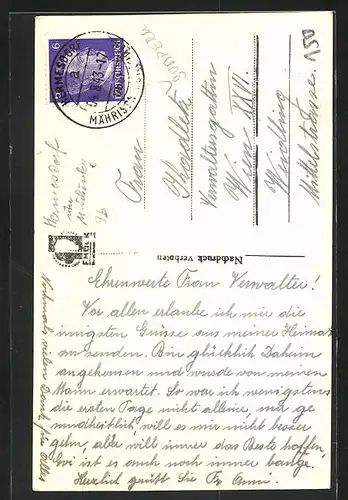 Ehrenwerte Frau Verwalter!
Vor allen erlaube ich mir die
innigsten Grüsse aus meiner Heimat
zu senden. Bin glücklich Daheim
angekommen und wurde von meinen
Mann erwartet. So war ich wenigstens
die ersten Tage nicht alleine, mir ge
sundheitlich will es mir nicht besser
gehn, aber will immer das Beste hoffen,
Evi ist es auch noch immer bange.
Herzlich grüßt Sie Fr Anni.
Nochmals vielen Dank für Alles
Nachdruck verboten
Frau
Verwaltersgattin
Wien XXVI.
Mittelstrasse
HERMESDORF
MÄHRISCH
a
DEUTSCHES REICH
6
150